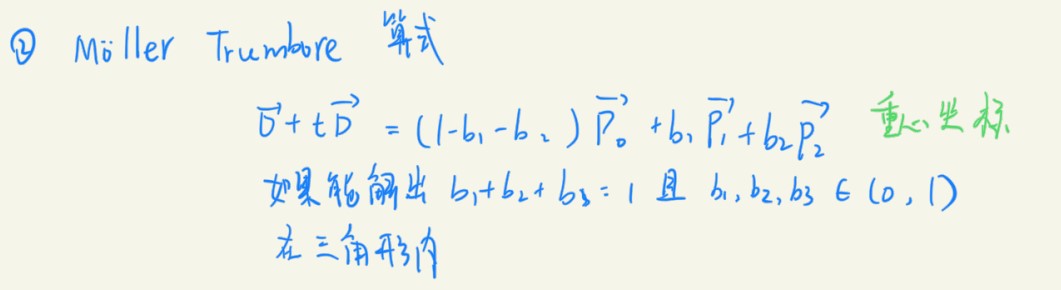 ② Möller Trumbore 算式
O⃗ + tD⃗ = (1-b₁-b₂)P⃗₀ + b₁P⃗₁ + b₂P⃗₂ 重心坐标
如果能解出 b₁+b₂+b₃=1 且 b₁,b₂,b₃ ∈ (0,1)
在三角形内